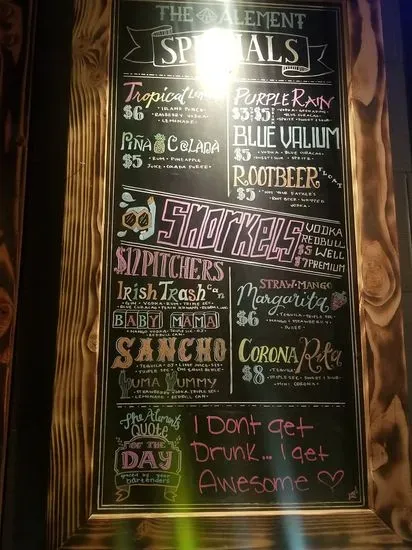 THE ALEMENT
SPECIALS
Tropical
$6
ISLAND PUNCH
RASPBERRY VODKA
LEMONADE
PURPLE RAIN
BLUE CURACAO
PIÑA COLADA
$5
RUM • PINEAPPLE
JUICE • COLADA PUREE
BLUE VALIUM
$5
VODKA • BLUE CURACAO
SPRITE
ROOTBEER FLOAT
$5
NOT YOUR FATHER'S
ROOT BEER • WHIPPED
VODKA
SNORKELS
VODKA
REDBULL
$5 WELL
$7 PREMIUM
$12 PITCHERS
IRISH TRASH CAN
GIN • VODKA • RUM • TRIPLE SEC
BABY MAMA
SANCHO
YUMMY
LEMONADE • REDBULL CAN
STRAW-MANGO
Margarita
$6
TEQUILA • TRIPLE SEC
MANGO • STRAWBERRY
PUREE
CORONA Rita
$8
TEQUILA
TRIPLE SEC • SWEET & SOUR
MINI CORONA
The Alements
QUOTE
OF THE
DAY
bartenders
I Dont get
Drunk... I get
Awesome ♡